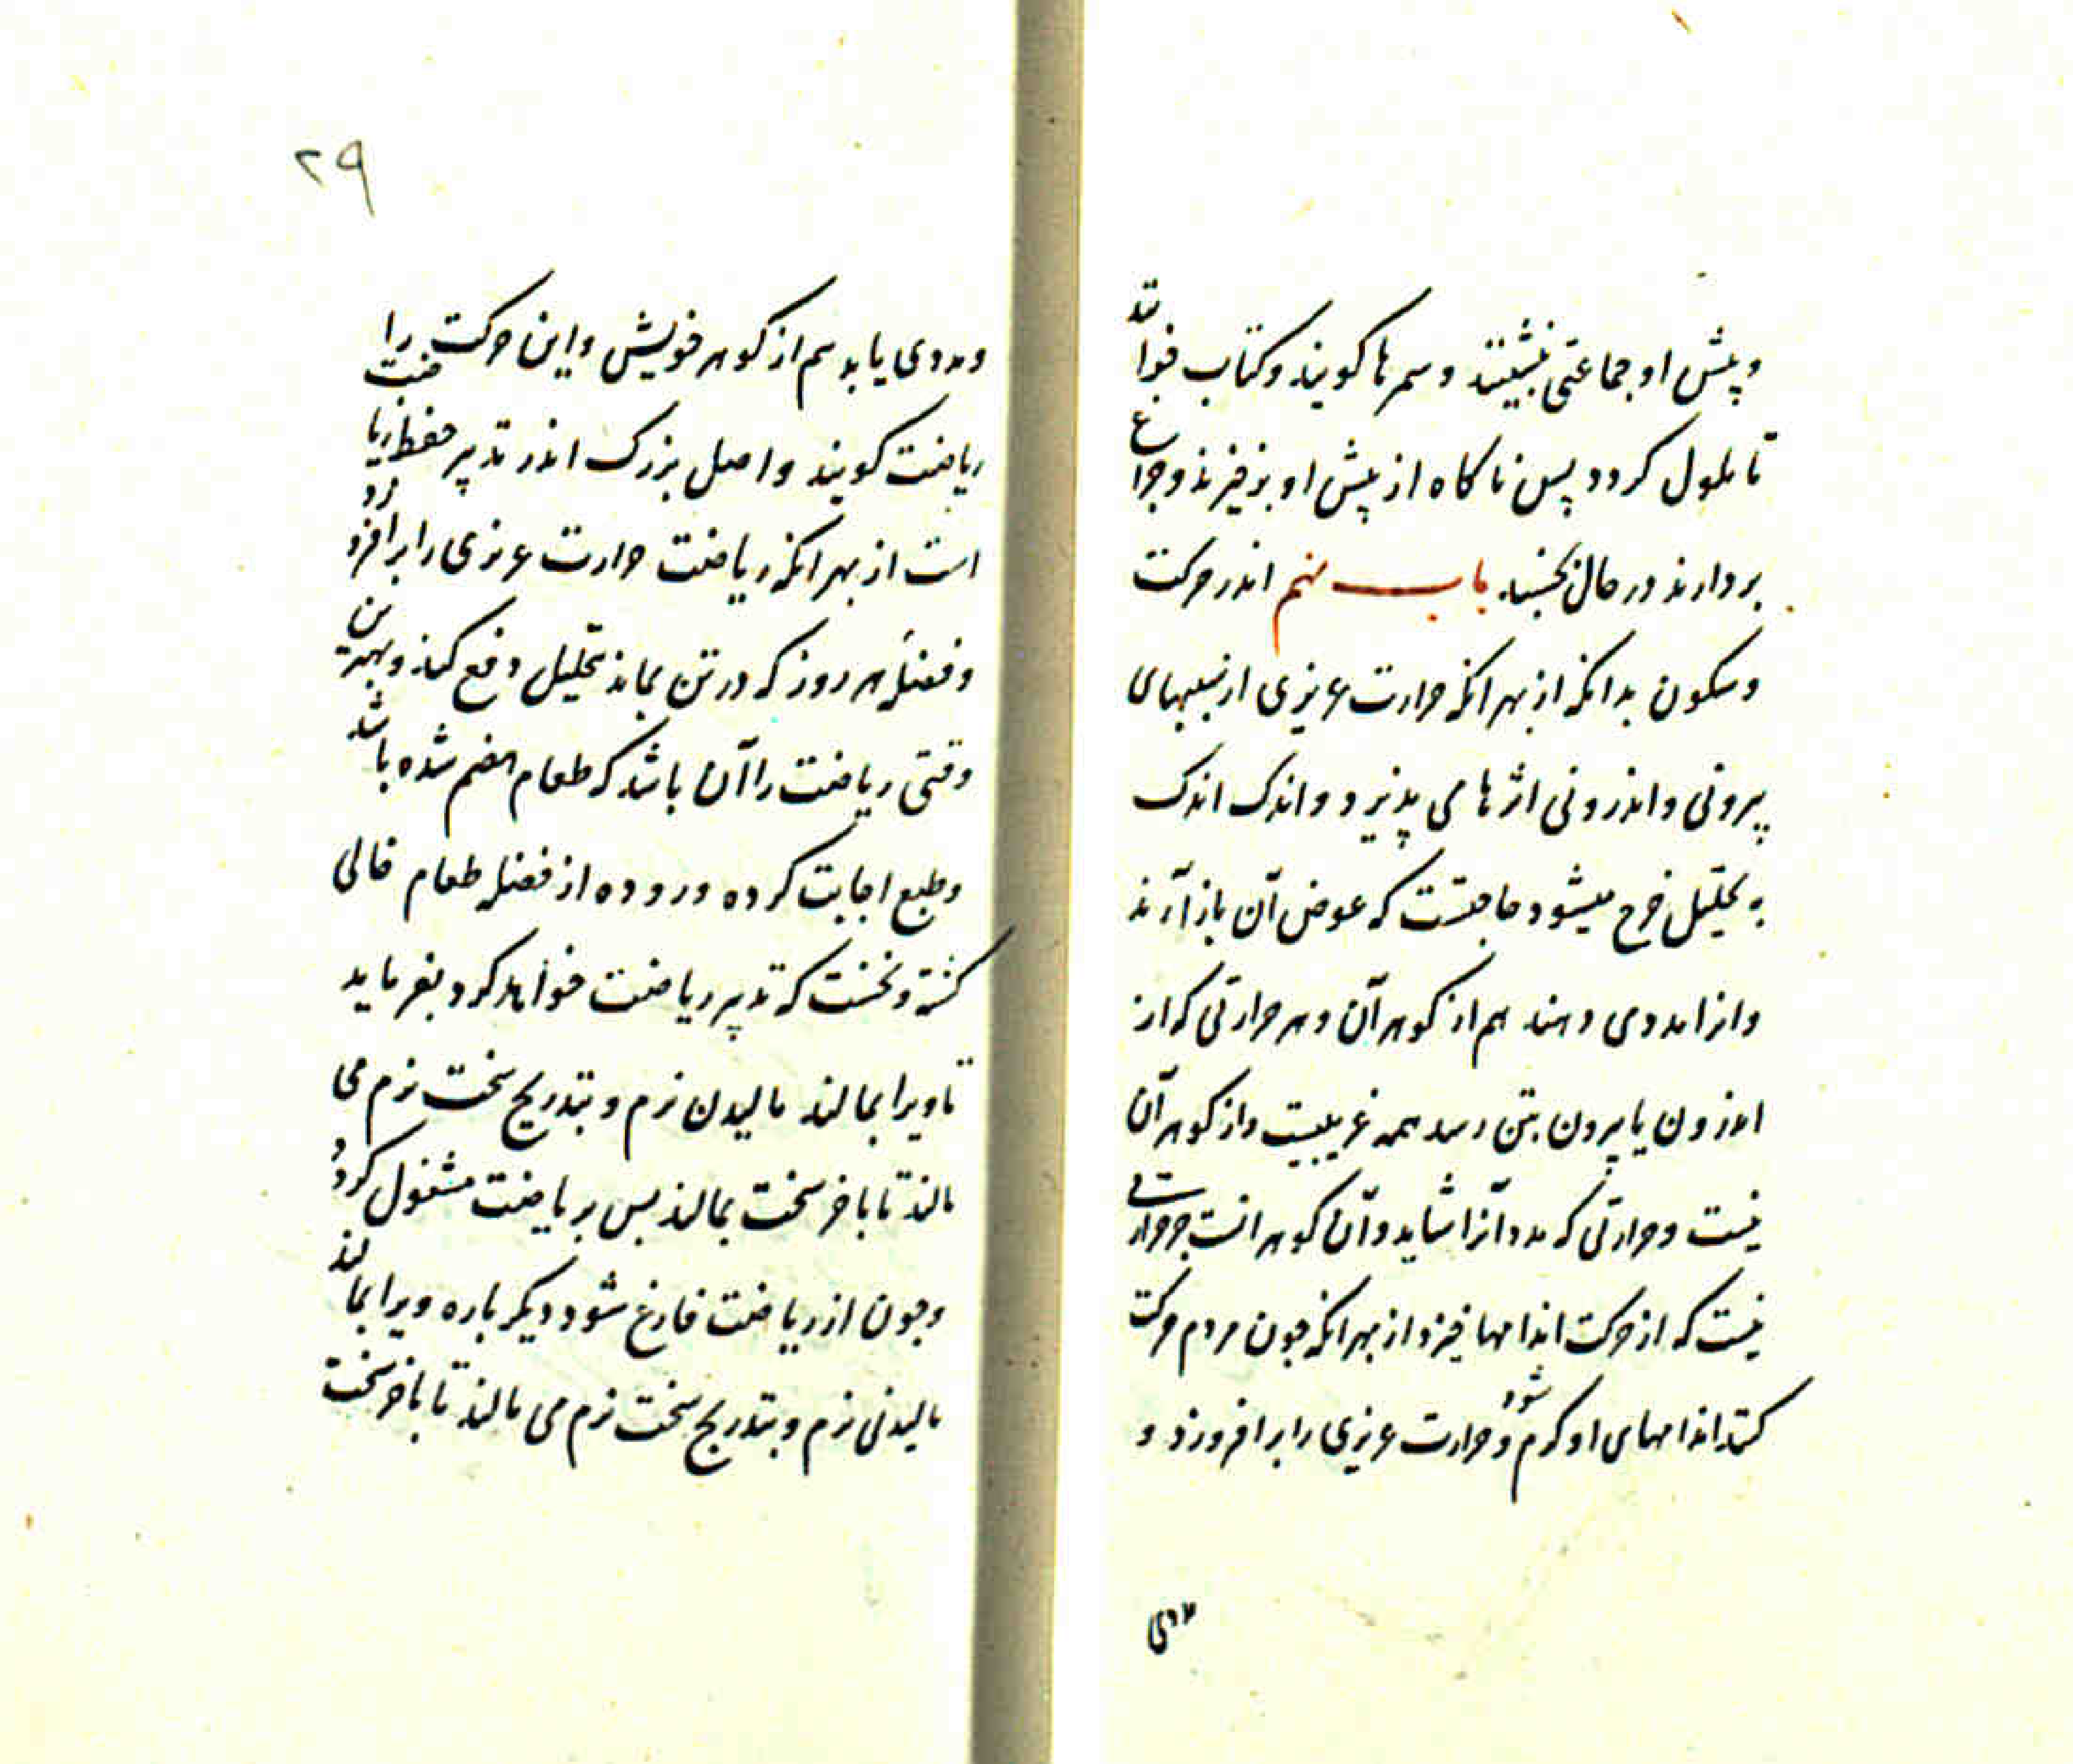 وپیش او جماعتی بنشینند و سمرها کویند و کتاب خوانند
تا ملول کردد پس ناکاه از پیش او برخیزند و چراغ
بردارند در حال بخسبد باب نهم اندر حرکت
وسکون بدانکه از بهر انکه حرارت غریزی از سببهای
بیرونی و اندرونی اثرها می پذیرد و اندک اندک
به تحلیل خرج میشود حاجتست که عوض آن باز آرند
وانرا مددی دهند هم از کوهر آن و هر حرارتی که از
اندرون یا بیرون بتن رسد همه غریبیست و از کوهر آن
نیست و حرارتی که مدد آنرا شاید و آن کوهر انست جز حرارتی
نیست که از حرکت اندامها خیزد از بهر انکه چون مردم حرکت
کند اندامهای او کرم شود و حرارت غریزی را برافروزد و
مددی
۲۹
ومددی یابد هم از کوهر خویش و این حرکت را
ریاضت کویند و اصل بزرک اندر تدبیر حفظ ریاضت
است از بهر انکه ریاضت حرارت غریزی را برافروزد
وفضله هر روز که در تن بماند تحلیل دفع کند و بهترین
وقتی ریاضت را آن باشد که طعام هضم شده باشد
وطبع اجابت کرده و روده از فضله طعام خالی
کشته و نخست که تدبیر ریاضت خواهد کرد بفرماید
تا ویرا بمالند مالیدن نرم و بتدریج سخت نرم می
مالند تا باخر سخت بمالند پس بریاضت مشغول کردد
وچون از ریاضت فارغ شود دیکر باره ویرا بمالند
مالیدنی نرم و بتدریج سخت نرم می مالند تا باخر سخت